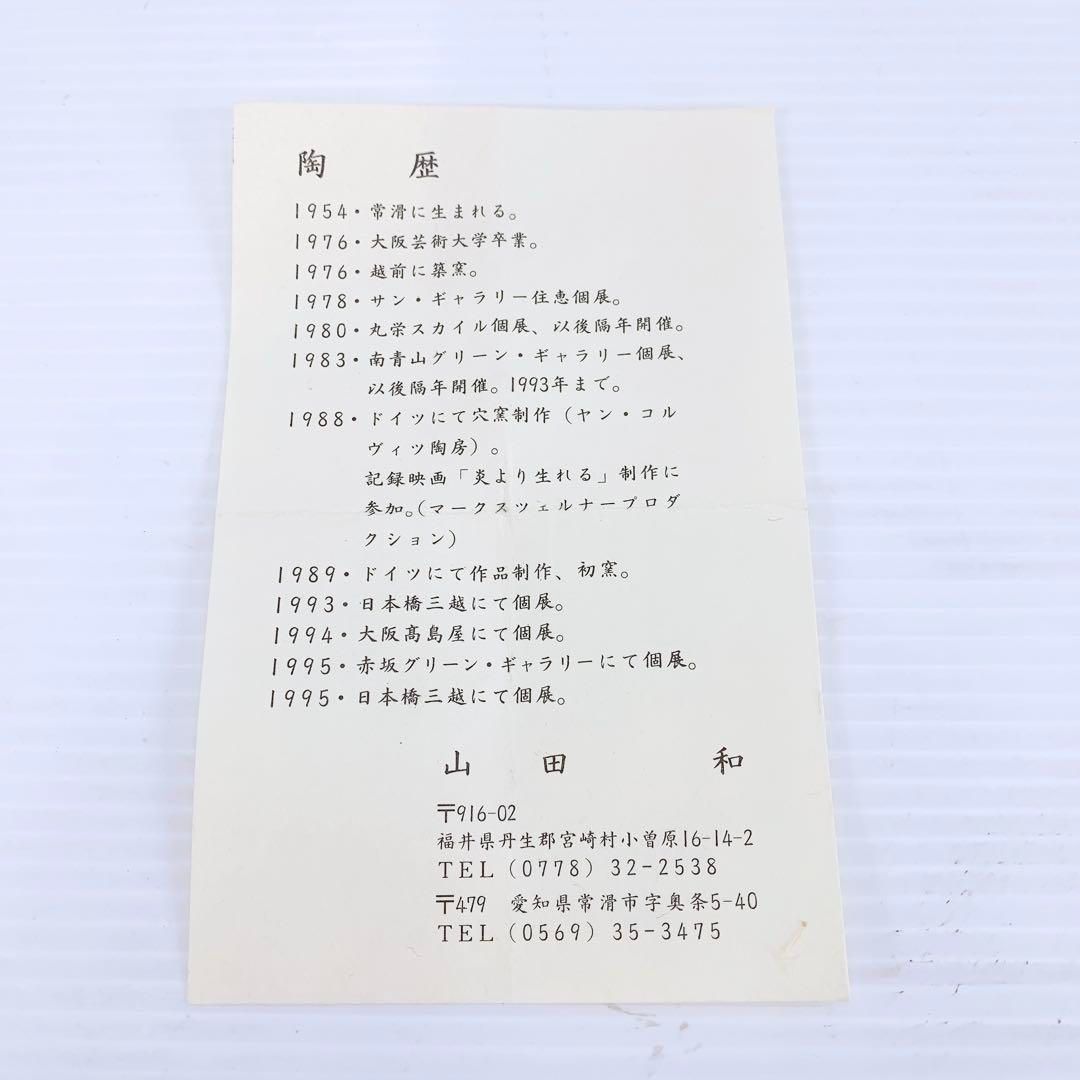 陶　歴
1954・常滑に生まれる。
1976・大阪芸術大学卒業。
1976・越前に築窯。
1978・サン・ギャラリー住恵個展。
1980・丸栄スカイル個展、以後隔年開催。
1983・南青山グリーン・ギャラリー個展、
以後隔年開催。1993年まで。
1988・ドイツにて穴窯制作（ヤン・コル
ヴィツ陶房）。
記録映画「炎より生れる」制作に
参加。（マークスツェルナープロダ
クション）
1989・ドイツにて作品制作、初窯。
1993・日本橋三越にて個展。
1994・大阪髙島屋にて個展。
1995・赤坂グリーン・ギャラリーにて個展。
1995・日本橋三越にて個展。
山　田　　和
〒916-02
福井県丹生郡宮崎村小曽原16-14-2
TEL（0778）32-2538
〒479　愛知県常滑市字奥条5-40
TEL（0569）35-3475